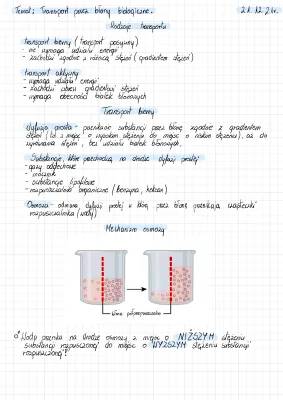 Temat: Transport przez błony biologiczne. 21.12.21r.
Rodzaje transportu
transport bierny (transport pasywny)
- nie wymaga udziału energii
- zachodzi zgodnie z różnicą stężeń (gradientem stężeń)
transport aktywny
- wymaga udziału energii
- zachodzi wbrew gradientowi stężeń
- wymaga obecności białek błonowych
Transport bierny
dyfuzja prosta - przenikanie substancji przez błonę zgodnie z gradientem
stężeń (tj. z miejsc o wysokim stężeniu do miejsc o niskim stężeniu), aż do
wyrównania stężeń, bez udziału białek błonowych.
Substancje, które przechodzą na drodze dyfuzji prostej
- gazy oddechowe
- mocznik
- substancje lipofilowe
- rozpuszczalniki organiczne (benzyna, heksan)
Osmoza - odmiana dyfuzji prostej w której przez błonę przenikają cząsteczki
rozpuszczalnika (wody)
Mechanizm osmozy
błona półprzepuszczalna
Woda przenika na drodze osmozy z miejsc o NIŻSZYM stężeniu
substancji rozpuszczonej do miejsc o WYŻSZYM stężeniu substancji
rozpuszczonej!